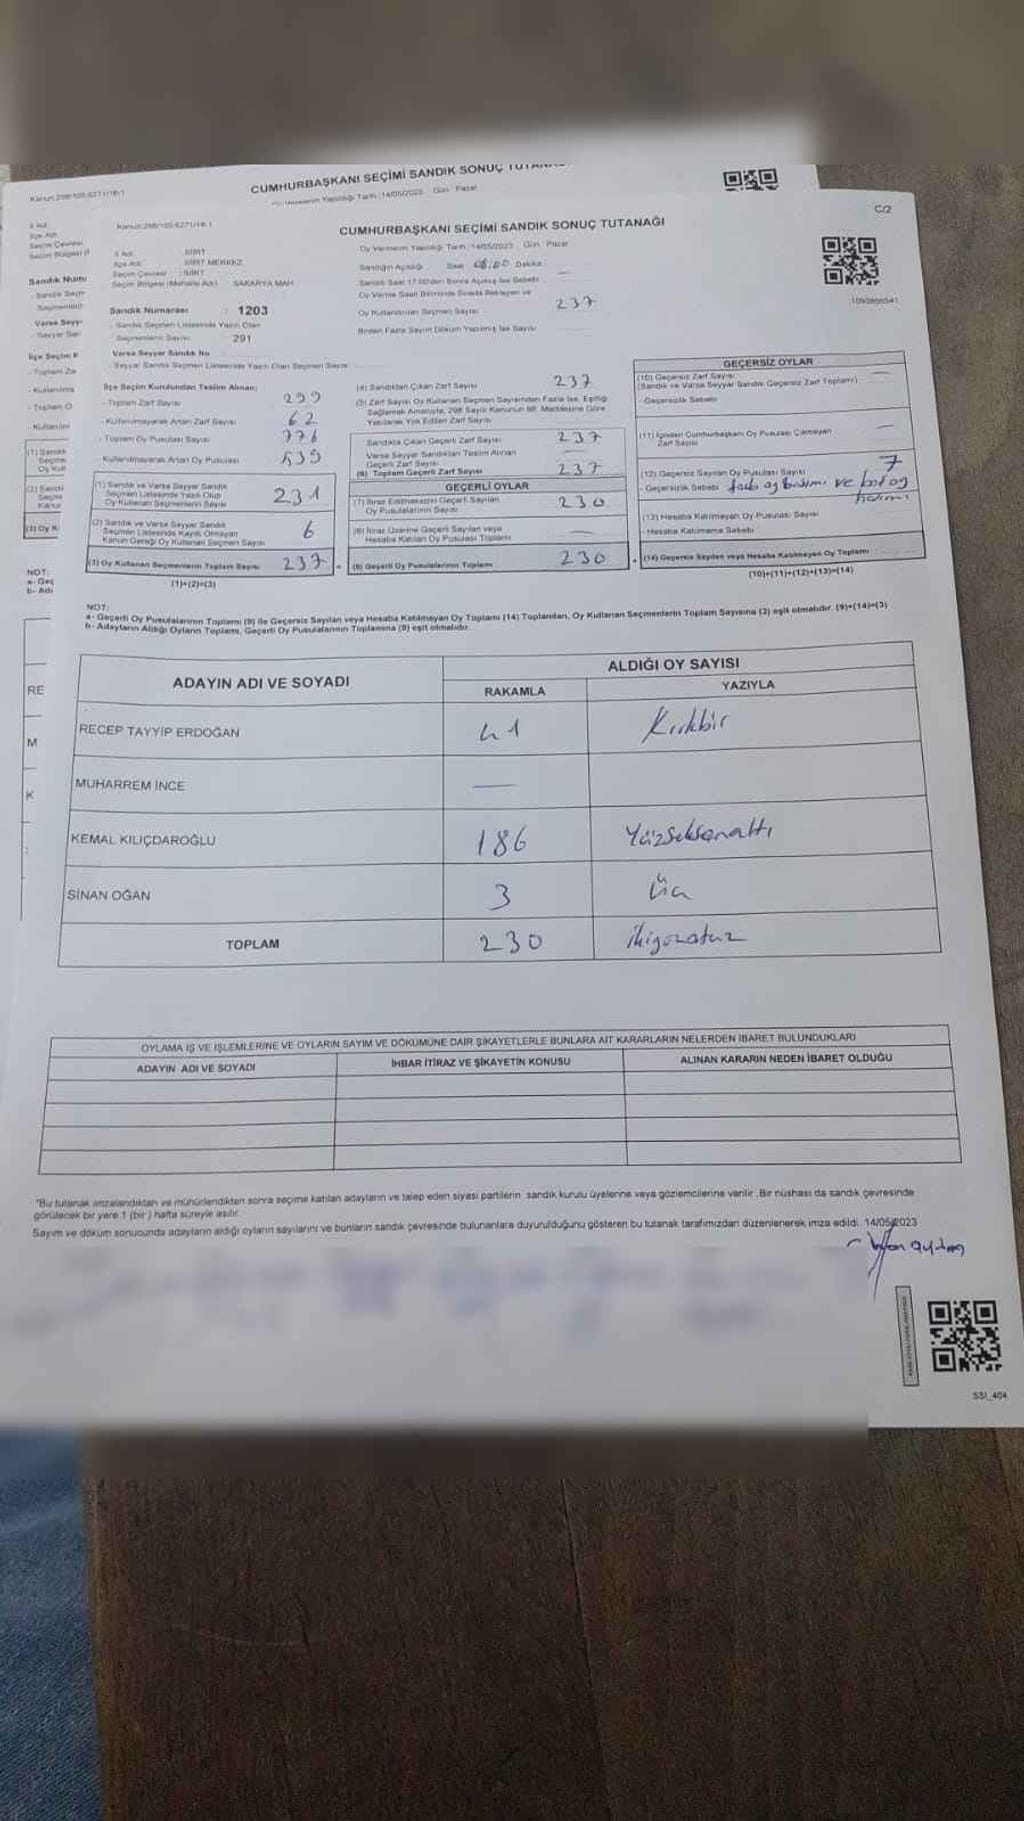 Kanun:298/105-6271/18-1
CUMHURBAŞKANI SEÇİMİ SANDIK SONUÇ
Tarih :14/05/2023 Gün : Pazar
Sandık Numa
Kanun:298/105-6271/18-1
CUMHURBAŞKANI SEÇİMİ SANDIK SONUÇ TUTANAĞI
C/2
Oy Vermenin Yapıldığı Tarih :14/05/2023 Gün : Pazar
İl Adı : SİİRT
İlçe Adı : SİİRT MERKEZ
Seçim Çevresi : SİİRT
Seçim Bölgesi (Mahalle Adı) : SAKARYA MAH.
Sandığın Açıldığı Saat: 08:00 Dakika
Sandık Saat 17:00'den Sonra Açılmış İse Sebebi: —
Oy Verme Saati Bitiminde Sırada Bekleyen ve
Oy Kullandırılan Seçmen Sayısı 237
Birden Fazla Sayım Döküm Yapılmış İse Sayısı
Sandık Numarası : 1203
- Sandık Seçmen Listesinde Yazılı Olan
Seçmenlerin Sayısı : 291
Varsa Seyyar Sandık No :
- Seyyar Sandık Seçmen Listesinde Yazılı Olan Seçmen Sayısı
İlçe Seçim Kurulundan Teslim Alınan:
- Toplam Zarf Sayısı 299
- Kullanılmayarak Artan Zarf Sayısı 62
- Toplam Oy Pusulası Sayısı 776
- Kullanılmayarak Artan Oy Pusulası 539
(1) Sandık ve Varsa Seyyar Sandık
Seçmen Listesinde Yazılı Olup
Oy Kullanan Seçmenlerin Sayısı 231
(2) Sandık ve Varsa Seyyar Sandık
Seçmen Listesinde Kayıtlı Olmayan
Kanun Gereği Oy Kullanan Seçmen Sayısı 6
(3) Oy Kullanan Seçmenlerin Toplam Sayısı 237
(1)+(2)=(3)
(4) Sandıktan Çıkan Zarf Sayısı 237
(5) Zarf Sayısı Oy Kullanan Seçmen Sayısından Fazla İse, Eşitliği
Sağlamak Amacıyla, 298 Sayılı Kanunun 98. Maddesine Göre
Yakılarak Yok Edilen Zarf Sayısı
Sandıkta Çıkan Geçerli Zarf Sayısı 237
Varsa Seyyar Sandıktan Teslim Alınan
Geçerli Zarf Sayısı —
(6) Toplam Geçerli Zarf Sayısı 237
GEÇERLİ OYLAR
(7) İtiraz Edilmeksizin Geçerli Sayılan
Oy Pusulalarının Sayısı 230
(8) İtiraz Üzerine Geçerli Sayılan veya
Hesaba Katılan Oy Pusulası Toplamı —
(9) Geçerli Oy Pusulalarının Toplamı 230
GEÇERSİZ OYLAR
(10) Geçersiz Zarf Sayısı
(Sandık ve Varsa Seyyar Sandık Geçersiz Zarf Toplamı) —
- Geçersizlik Sebebi:
(11) İçinden Cumhurbaşkanı Oy Pusulası Çıkmayan
Zarf Sayısı —
(12) Geçersiz Sayılan Oy Pusulası Sayısı 7
- Geçersizlik Sebebi: ve
(13) Hesaba Katılmayan Oy Pusulası Sayısı
- Hesaba Katılmama Sebebi:
(14) Geçersiz Sayılan veya Hesaba Katılmayan Oy Toplamı
(10)+(11)+(12)+(13)=(14)
NOT:
a- Geçerli Oy Pusulalarının Toplamı (9) ile Geçersiz Sayılan veya Hesaba Katılmayan Oy Toplamı (14) Toplamları, Oy Kullanan Seçmenlerin Toplam Sayısına (3) eşit olmalıdır. (9)+(14)=(3)
b- Adayların Aldığı Oyların Toplamı, Geçerli Oy Pusulalarının Toplamına (9) eşit olmalıdır.
ADAYIN ADI VE SOYADI
ALDIĞI OY SAYISI
RAKAMLA YAZIYLA
RECEP TAYYİP ERDOĞAN 41 Kırkbir
MUHARREM İNCE —
KEMAL KILIÇDAROĞLU 186 Yüzseksenaltı
SİNAN OĞAN 3 Üç
TOPLAM 230 ikiyüzotuz
OYLAMA İŞ VE İŞLEMLERİNE VE OYLARIN SAYIM VE DÖKÜMÜNE DAİR ŞİKAYETLERLE BUNLARA AİT KARARLARIN NELERDEN İBARET BULUNDUKLARI
ADAYIN ADI VE SOYADI İHBAR İTİRAZ VE ŞİKAYETİN KONUSU ALINAN KARARIN NEDEN İBARET OLDUĞU
*Bu tutanak imzalandıktan ve mühürlendikten sonra seçime katılan adayların ve talep eden siyasi partilerin sandık kurulu üyelerine veya gözlemcilerine verilir. Bir nüshası da sandık çevresinde
görülecek bir yere 1 (bir) hafta süreyle asılır.
Sayım ve döküm sonucunda adayların aldığı oyların sayılarını ve bunların sandık çevresinde bulunanlara duyurulduğunu gösteren bu tutanak tarafımızdan düzenlenerek imza edildi. 14/05/2023
SSI_404